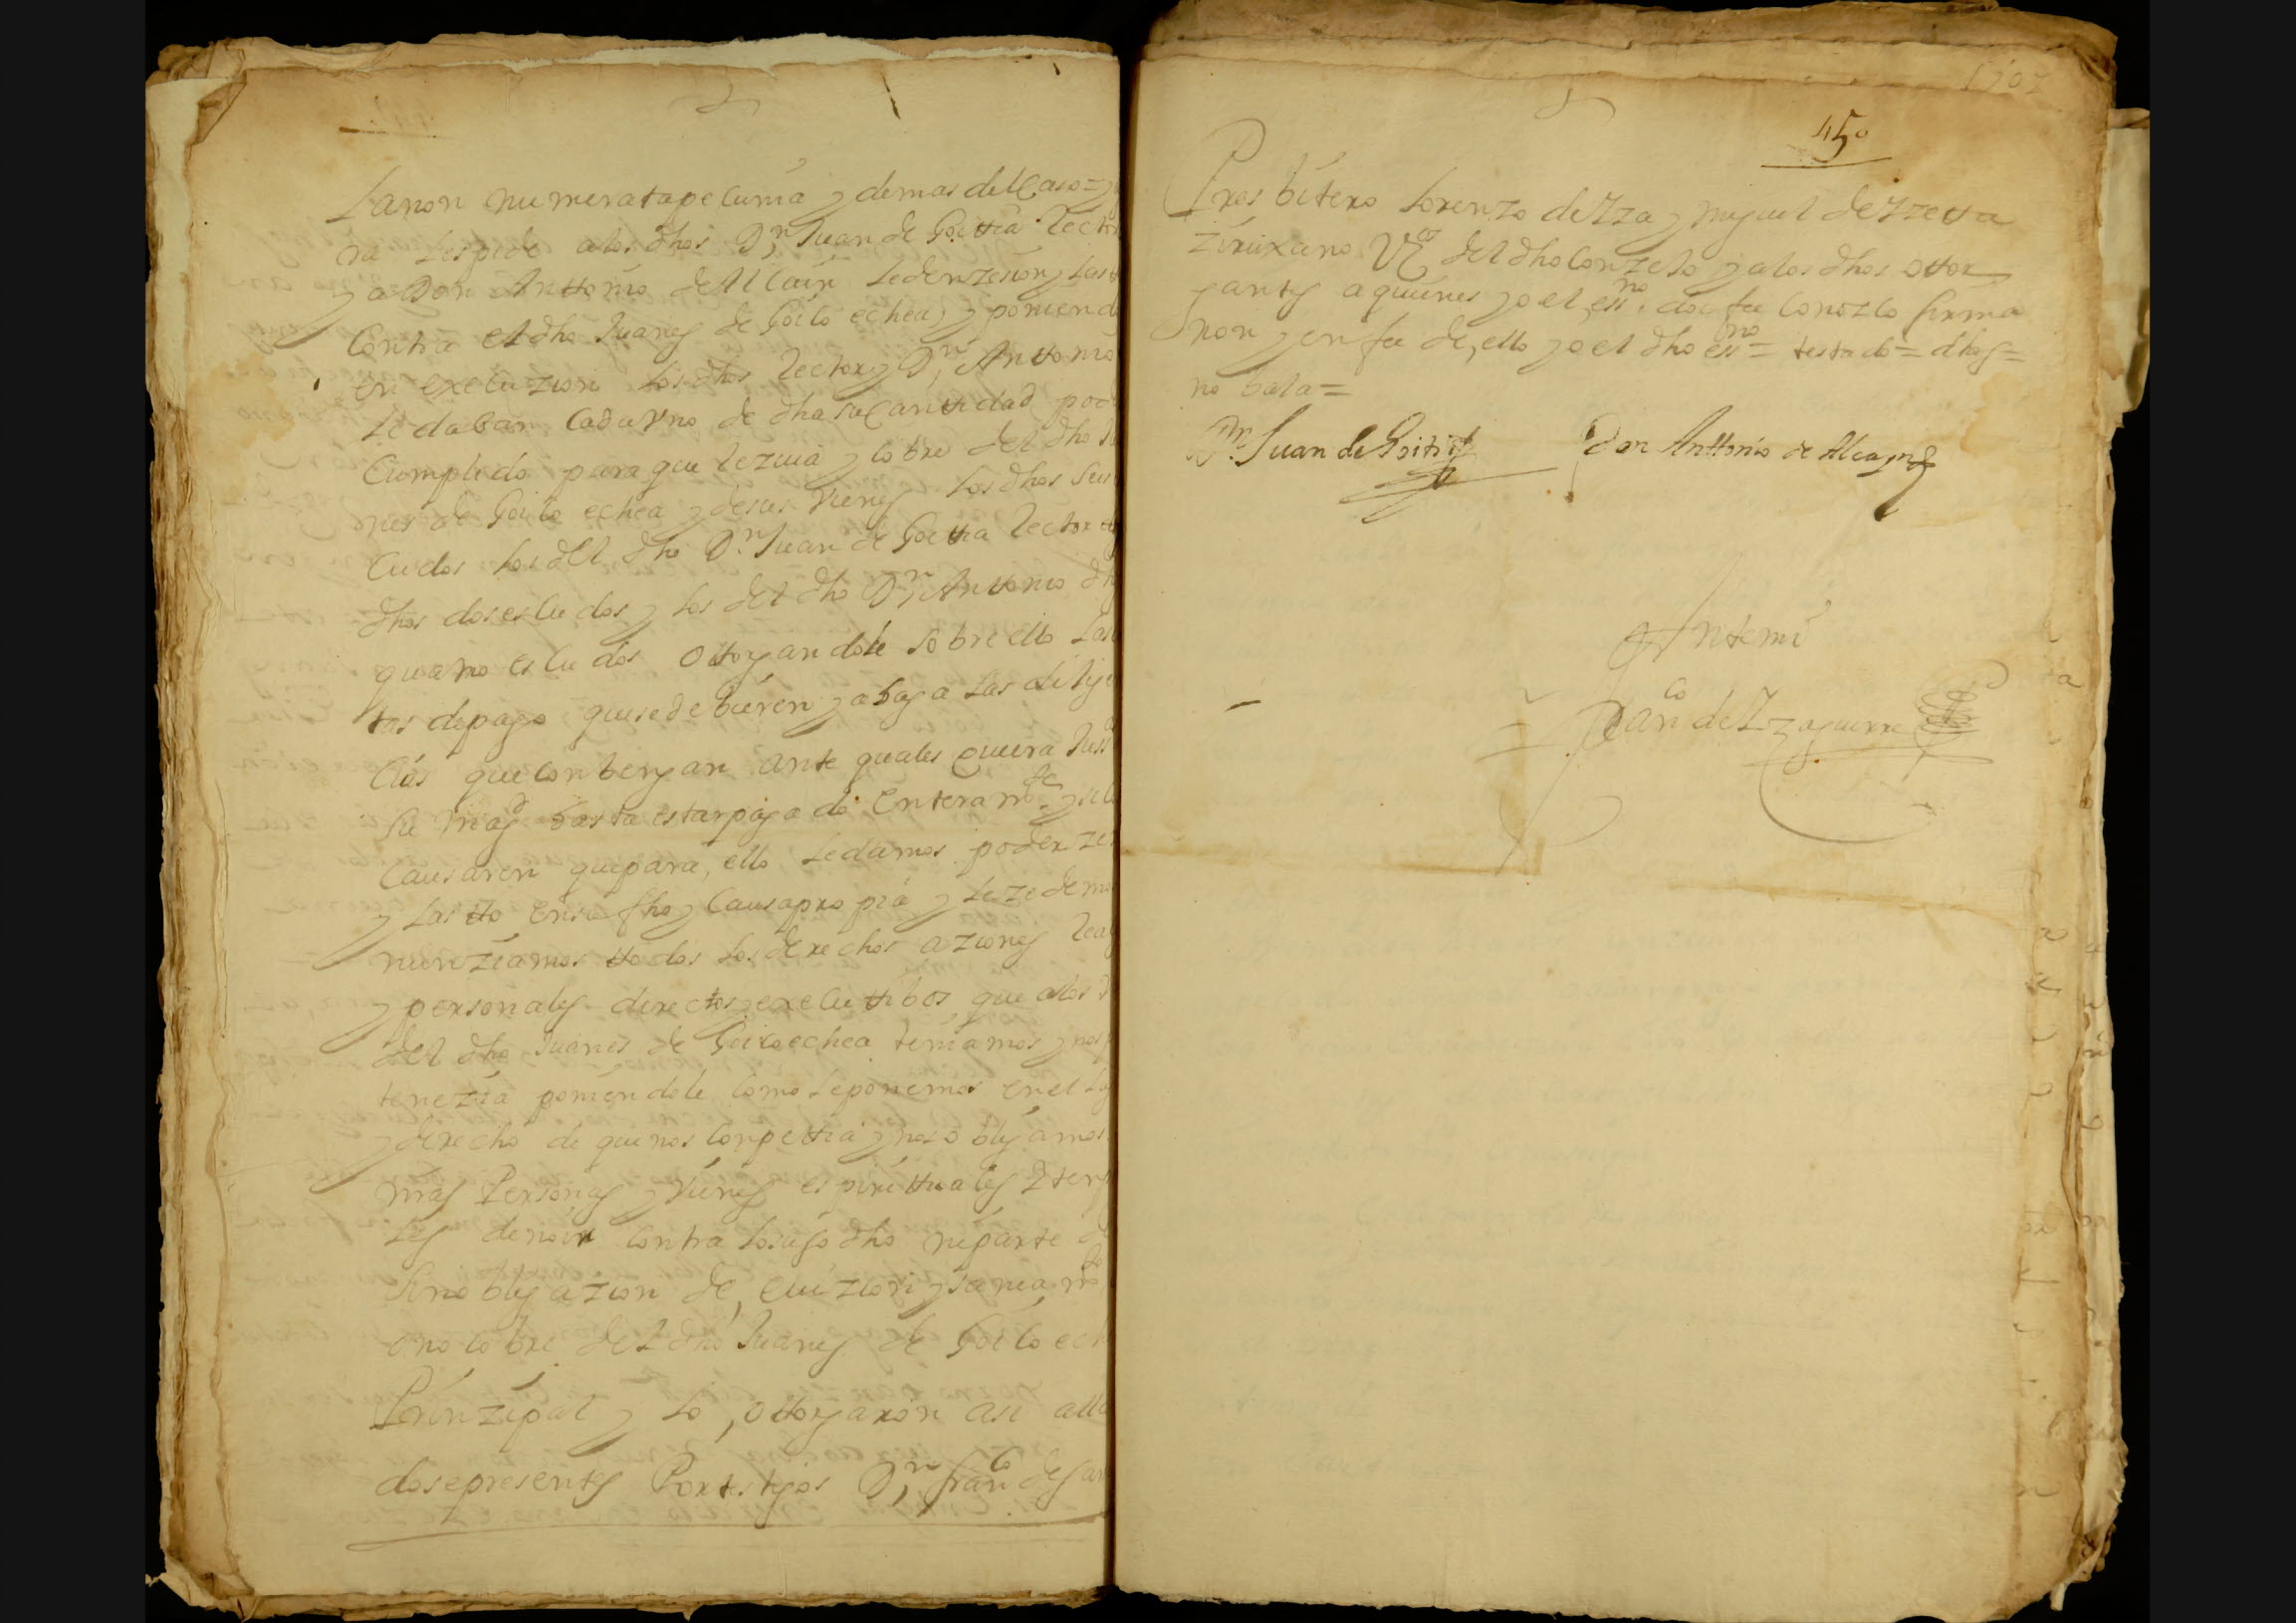 La non numerata pecunia y demas del Caso = y
ra les pide a los dhos Dn Juan de Goittia Rector
y a Don Anttonio de Alcain le den zesion y lasto
Contra el dho Juanes de Goicoechea, y poniendo
en execuzion los dhos Rector y Dn Anttonio
le daban Cada Vno de dha su Canttidad pod
Cumplido para que reziua y cobre del dho Ju
nes de Goicoechea y de sus Vienes los dhos seis
Cudos los del dho Dn Juan de Goittia Rector
dhos dos escudos y los del dho Dn Anttonio dh
quatro escudos ottorgandole sobre ello las
tas de pago que se debieren y aga las dilige
cias que conbengan ante quales quiera Juss
su Magd hasta estar pagado enteramte y se le
Causaren que para ello le damos poder zes
y lastto, en su fho y Causa propia y le zedemos
nunziamos ttodos los derechos aziones Rea
y personales directos y executtibos que a los
del dho Juanes de Goicoechea teniamos y nos p
tenezia poniendole como le ponemos en el lug
y derecho de que nos conpettia y nos obligamos
nras Personas y Vienes espirittuales y tenp
les de no ir contra lo suso dho ni parte de
sin obligazion de, euizion y saneamto
o no cobre del dho Juanes de Goicoech
Prinzipal y lo, ottorgaron asi alla
dose presentes Por testigos Dn franco de San
1707
450
Presbitero Lorenzo de Yza y Miguel de Yzetta
Ziruxano Vos del dho Conzejo y a los dhos ottor
gantes a quienes yo el, essno doi fee conozco firma
ron y en fee de, ello yo el dho essno = testado = dhos =
no bala =
Dn Juan de Goitia Don Anttonio de Alcayn
Antemi
Franco de Yzaguirre